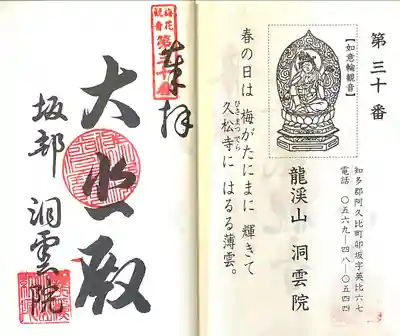 第三十番
【如意輪観音】
知多郡阿久比町卯坂字英比六七
電話 〇五六九―四八―〇五四四
龍渓山 洞雲院
春の日は 梅がたにまに 輝きて
久松寺に はるる薄雲。
梅花観音第三十番
奉拝
大悲殿
坂部 洞雲院